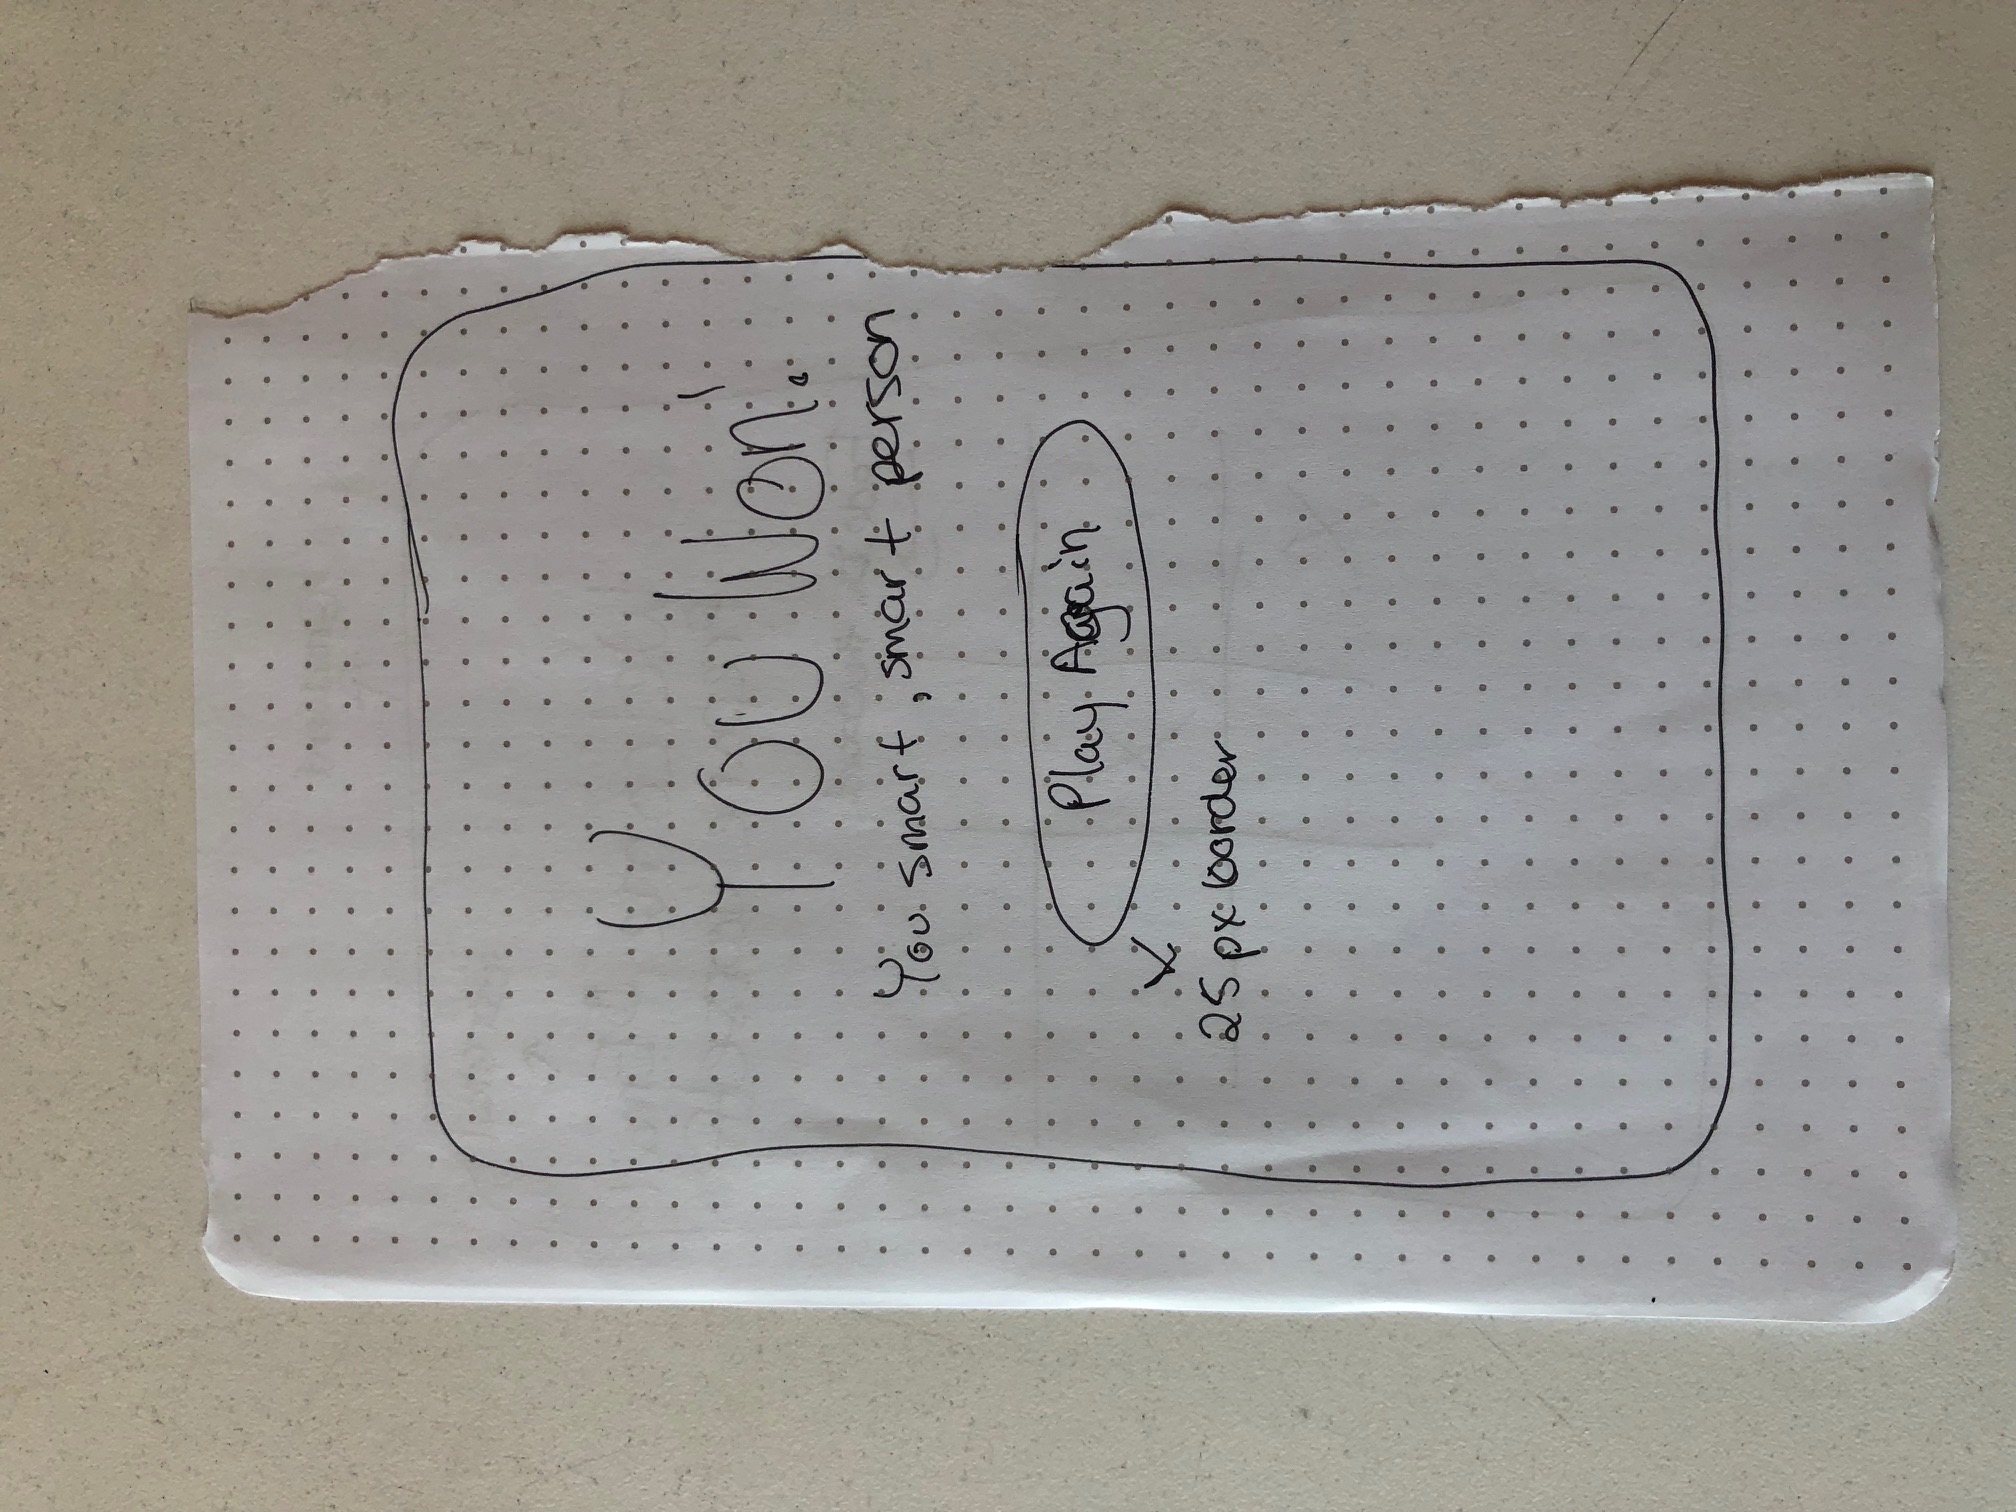 You Won!
You smart, smart person
Play Again
25px border